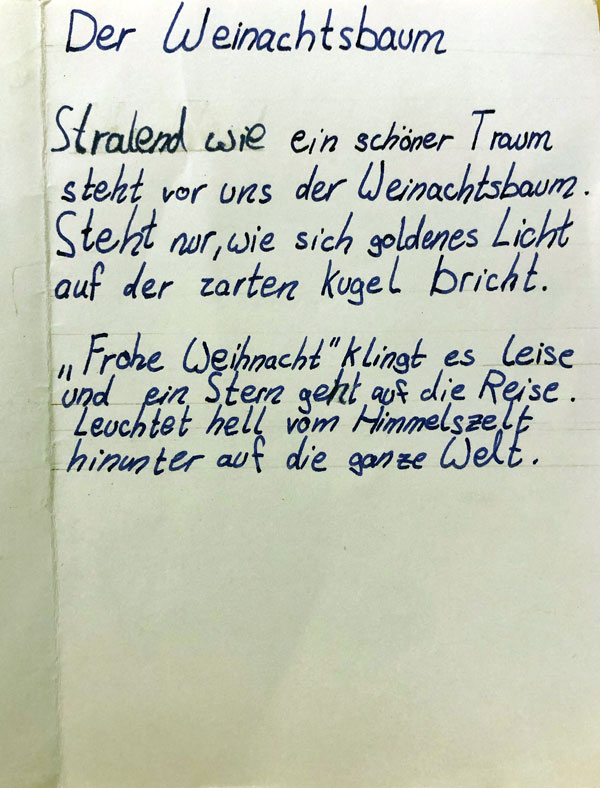 Der Weinachtsbaum
Stralend wie ein schöner Traum
steht vor uns der Weinachtsbaum.
Steht nur, wie sich goldenes Licht
auf der zarten kugel bricht.
„Frohe Weihnacht" klingt es leise
und ein Stern geht auf die Reise.
Leuchtet hell vom Himmelszelt
hinunter auf die ganze Welt.